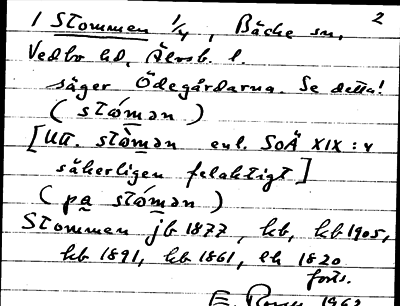 2
1 Stommen 1/4, Bäcke sn,
Vedbo hd, Älvsb. l.
säger Ödegårdarna. Se detta!
(stómən)
[Utt. stòmən enl. SoÄ XIX : v
säkerligen felaktigt]
(pa stómən)
Stommen jb 1877, hb, kb 1905,
kb 1891, kb 1861, ek 1820
forts.
1962